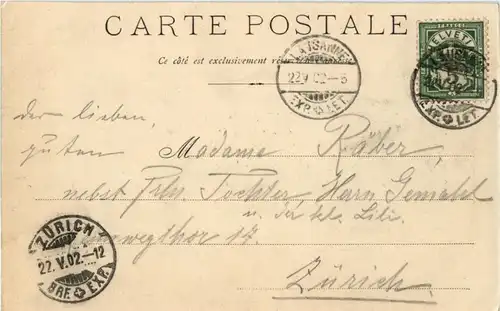 CARTE POSTALE
Ce côté est exclusivement
LAUSANNE
22.V.02-5
EXP. LET.
HELVETIA
EXP. LET.
der lieben,
guten
Madame Räber,
nebst Frln. Tochter, Herrn Gemahl
u. der kl. Lili.
17.
Zürich.
ZÜRICH
22.V.02.-12
BRF. EXP.